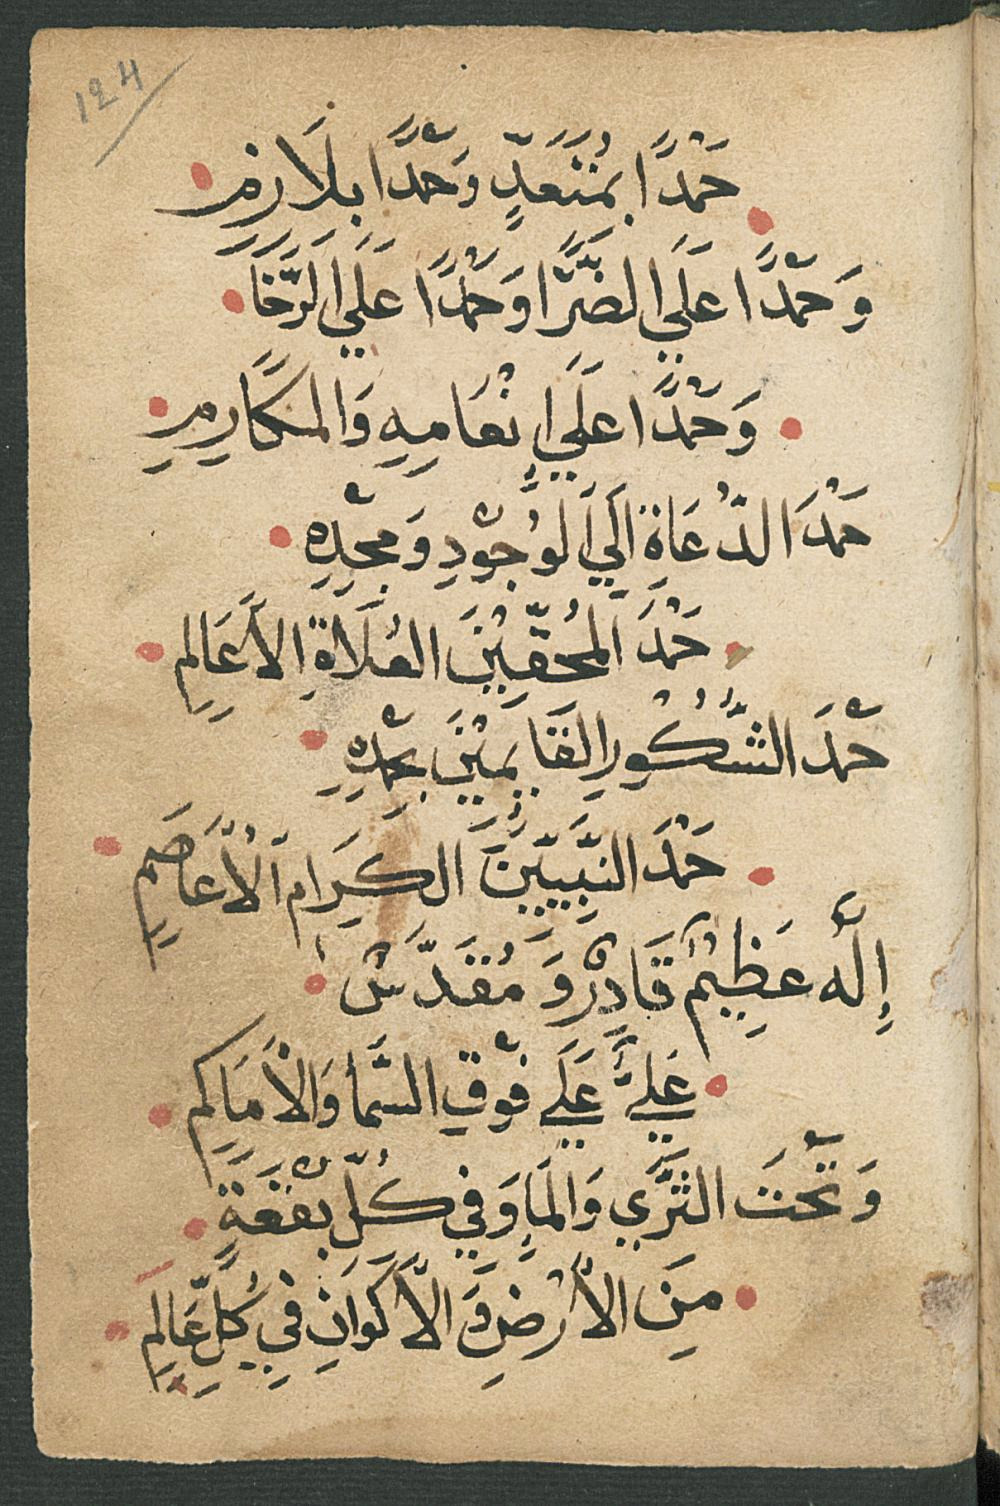 124
حَمْدًا بِمُتَعَدٍّ وَحَمْدًا بِلَازِمِ
وَحَمْدًا عَلَي الضَّرَّا وَحَمْدًا عَلَي الرَّخَا
وَحَمْدًا عَلَي إِنْعَامِهِ وَالمَكَارِمِ
حَمْدَ الدُّعَاةِ اِلَي الوُجُوْدِ وَمَجْدِهِ
حَمْدَ المُحَقِّيْنَ العُلَاةِ الأَعَالِمِ
حَمْدَ الشَّكُوْرِ القَايِمِيْنَ بِحَمْدِهِ
حَمْدَ النَّبِيِّيْنَ الكِرَامِ الأَعَاصِمِ
إِلَه عَظِيْمٌ قَادِرٌ وَ مُقَدَّسٌ
عَلِيٌّ عَلَي فَوْقِ السَّمَا وَالأَمَاكِمِ
وَتَحْتَ الثَّرَي وَالمَا وَفِي كُلِّ بُقْعَةٍ
مِنَ الأَرْضِ وَ الأَكْوَانِ فِي كُلِّ عَالِمِ